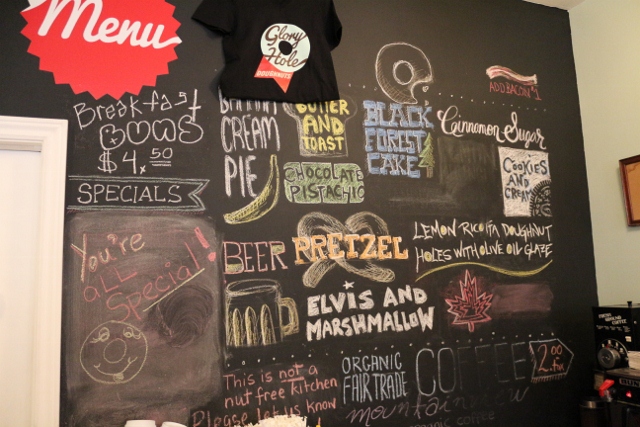 Menu
Glory
Hole
DOUGHNUTS
ADD BACON $1
Breakfast
BUNS
$4.50
SPECIALS
You're
all
Special!
CREAM
PIE
BUTTER
AND
TOAST
CHOCOLATE
PISTACHIO
BLACK
FOREST
CAKE
Cinnamon Sugar
COOKIES
AND
CREAM
BEER PRETZEL
LEMON RICOTTA DOUGHNUT
HOLES WITH OLIVE OIL GLAZE
ELVIS AND
MARSHMALLOW
This is not a
nut free kitchen
Please let us know
ORGANIC
FAIR TRADE
COFFEE
2.00
mountain
coffee